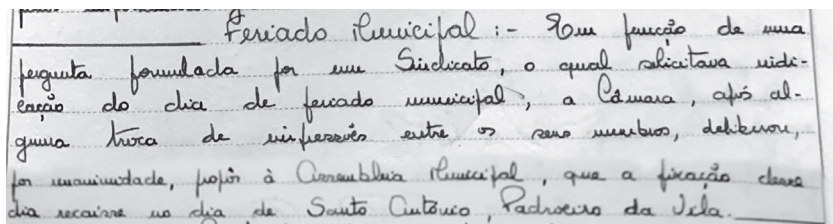 Feriado Municipal :- Em função de uma
pergunta formulada por um Sindicato, o qual solicitava indi-
cação do dia de feriado municipal, a Câmara, após al-
guma troca de impressões entre os seus membros, deliberou,
por unanimidade, propôr à Assembleia Municipal, que a fixação desse
dia recaisse no dia de Santo António, Padroeiro da Vila.